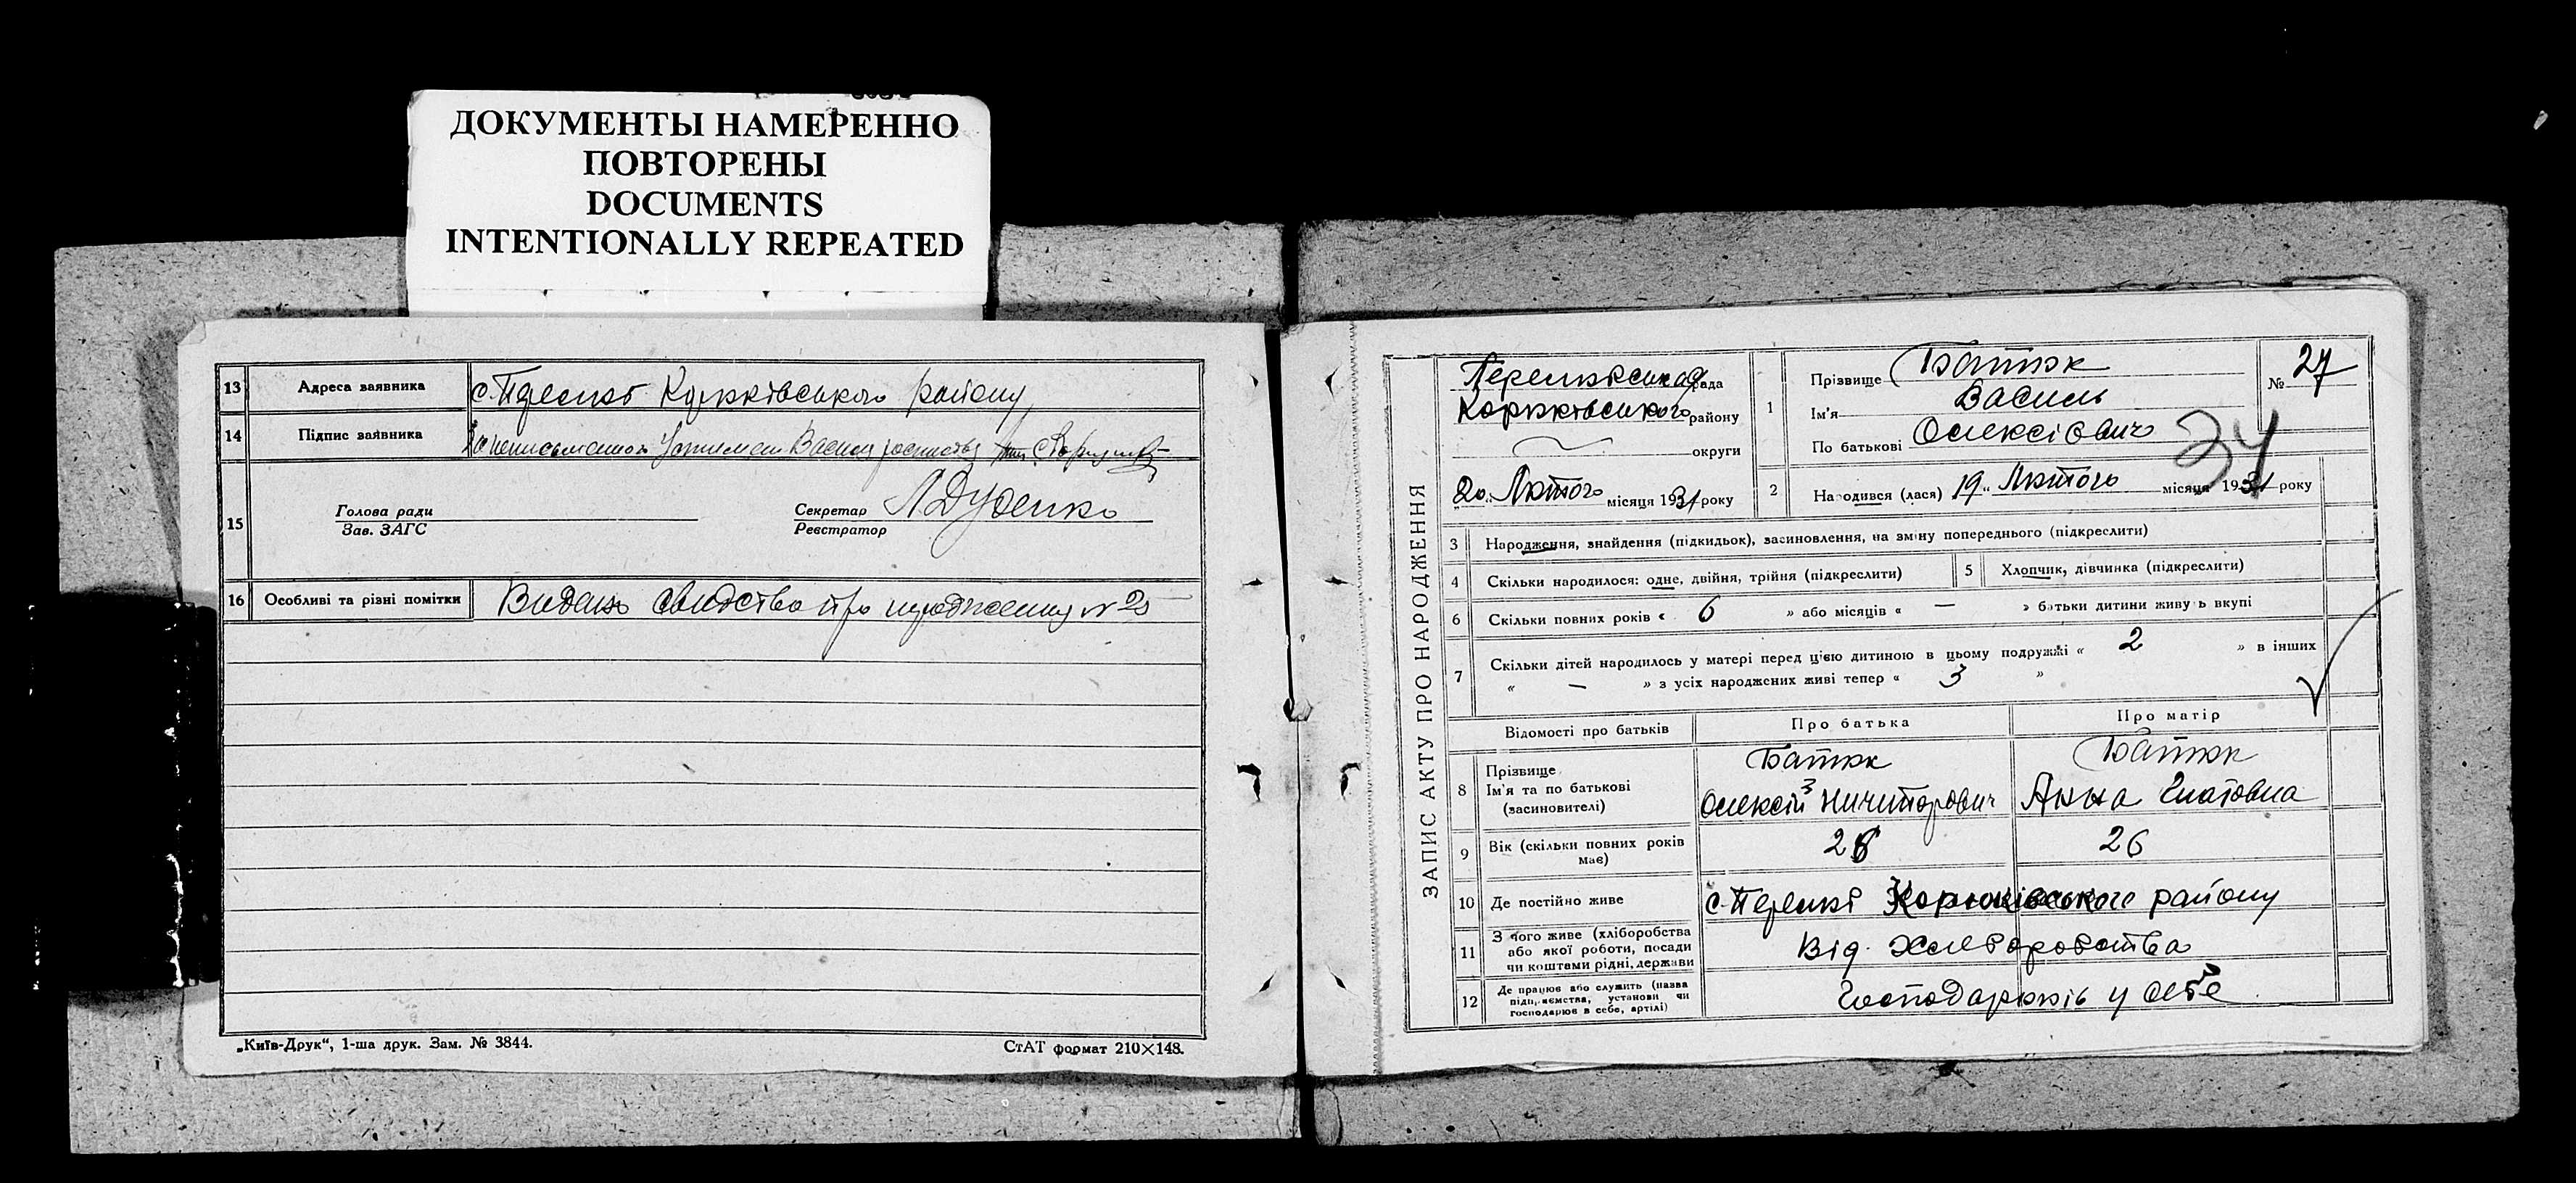 ДОКУМЕНТЫ НАМЕРЕННО
ПОВТОРЕНЫ
DOCUMENTS
INTENTIONALLY REPEATED
13 Адреса заявника с. Перелюб Корюківського району
14 Підпис заявника
15 Голова ради
Зав. ЗАГС
Секретар
Реєстратор Л Дуденко
16 Особливі та різні помітки Видано свидство про народження № 25
„Київ-Друк“, 1-ша друк. Зам. № 3844.
СтАТ формат 210×148.
ЗАПИС АКТУ ПРО НАРОДЖЕННЯ
Перелюбська рада
Корюківського району
округи
20 „ Лютого місяця 1931 року
1 Прізвище Батюк
Ім'я Василь
По батькові Олексієвич
№ 27
34
2 Народився (лася) 19 „ Лютого місяця 1931 року
3 Народження, знайдення (підкидьок), засиновлення, на зміну попереднього (підкреслити)
4 Скільки народилося: одне, двійня, трійня (підкреслити)
5 Хлопчик, дівчинка (підкреслити)
6 Скільки повних років « 6 » або місяців « — » батьки дитини живуть вкупі
7 Скільки дітей народилось у матері перед цією дитиною в цьому подружжі « 2 » в інших
« — » з усіх народжених живі тепер « 3 »
Відомості про батьків
Про батька
Про матір
8 Прізвище
Ім'я та по батькові
(засиновителі)
Батюк
Олексій Ничипорович
Батюк
Анна
9 Вік (скільки повних років
має)
28
26
10 Де постійно живе с. Перелюб Корюківського району
11 З чого живе (хліборобства
або якої роботи, посади
чи коштами рідні, держави
Від. хліборобства
12 Де працює або служить (назва
підприємства, установи чи
господарює в себе, артілі)
Господарює у себе